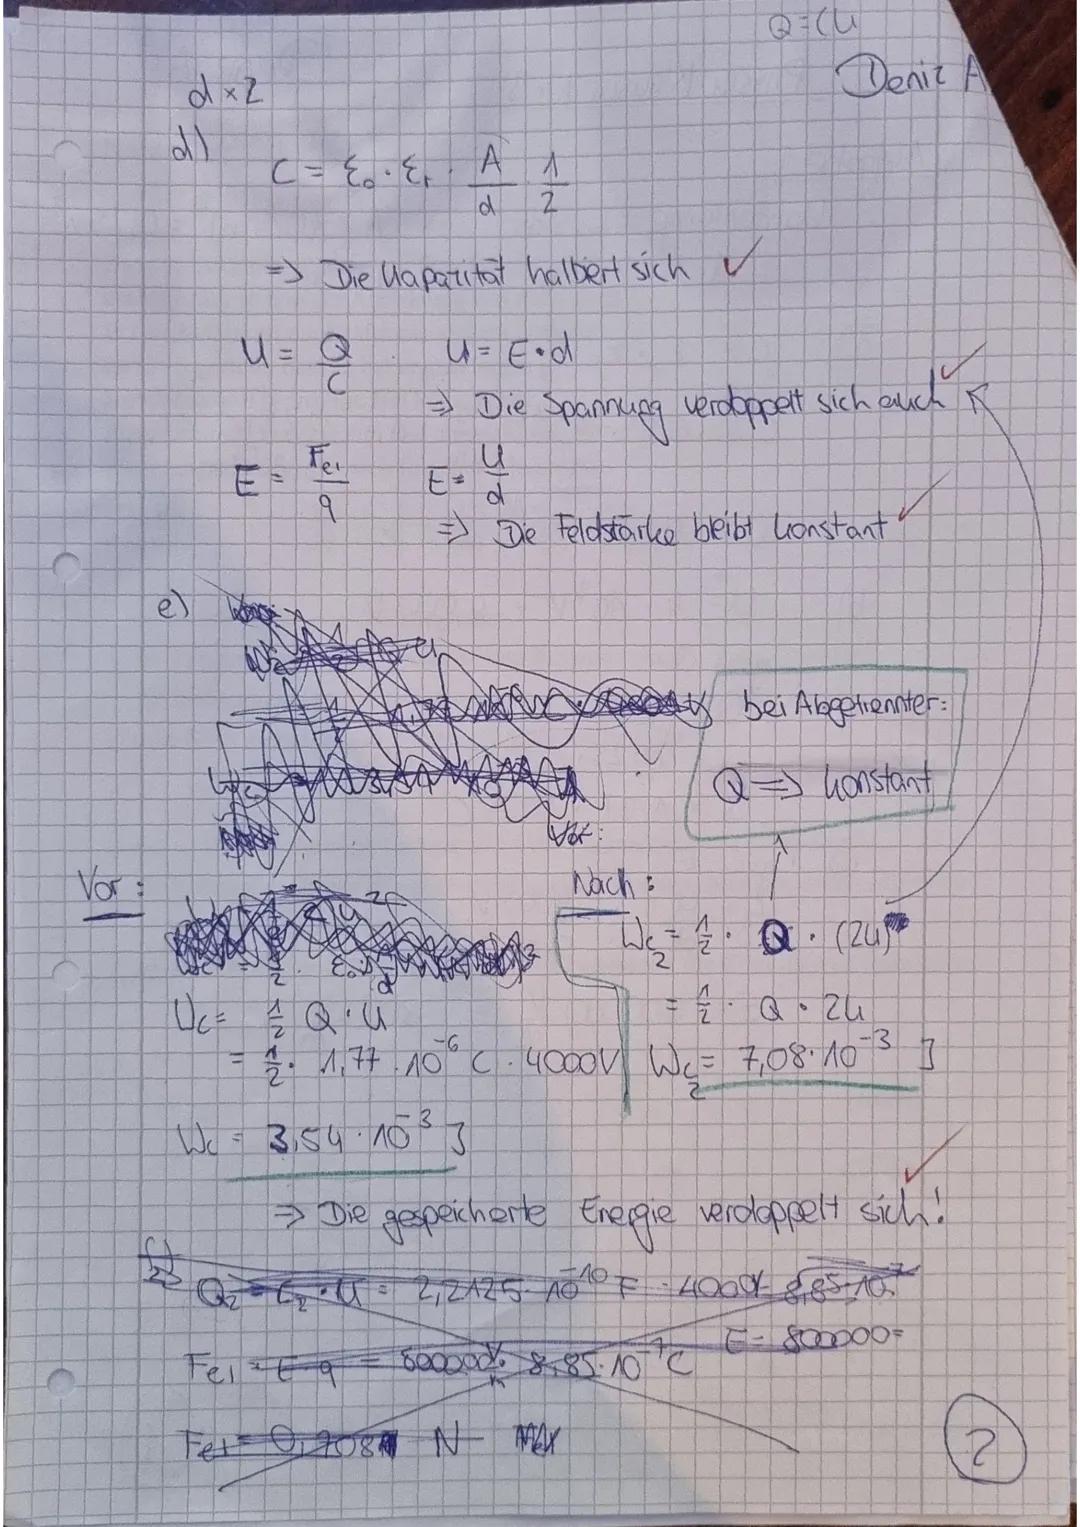 Q=CU
Deniz A
d×2
d)
C = ε₀·εᵣ· A/d 1/2
=> Die Kapazität halbiert sich ✓
U = Q/C U = E·d
=> Die Spannung verdoppelt sich auch ✓
E = Fel/q E = U/d
=> Die Feldstärke bleibt konstant ✓
e)
bei Abgetrennter:
Q => konstant
Vor:
Vor:
Nach:
Wc₂ = 1/2 · Q · (2U)
Wc = 1/2 Q·U
= 1/2 · Q · 2U
= 1/2 · 1,77·10⁻⁶ C · 4000V
Wc₂ = 7,08·10⁻³ J
Wc = 3,54·10⁻³ J
=> Die gespeicherte Energie verdoppelt sich! ✓
f)
Q₂ = C₂·U = 2,2125·10⁻¹⁰ F · 4000V 8,85·10⁻⁷
E = 800000=
Fel = E·q = 800000 V/m · 8,85·10⁻⁷ C
Fel = 0,708 N
2